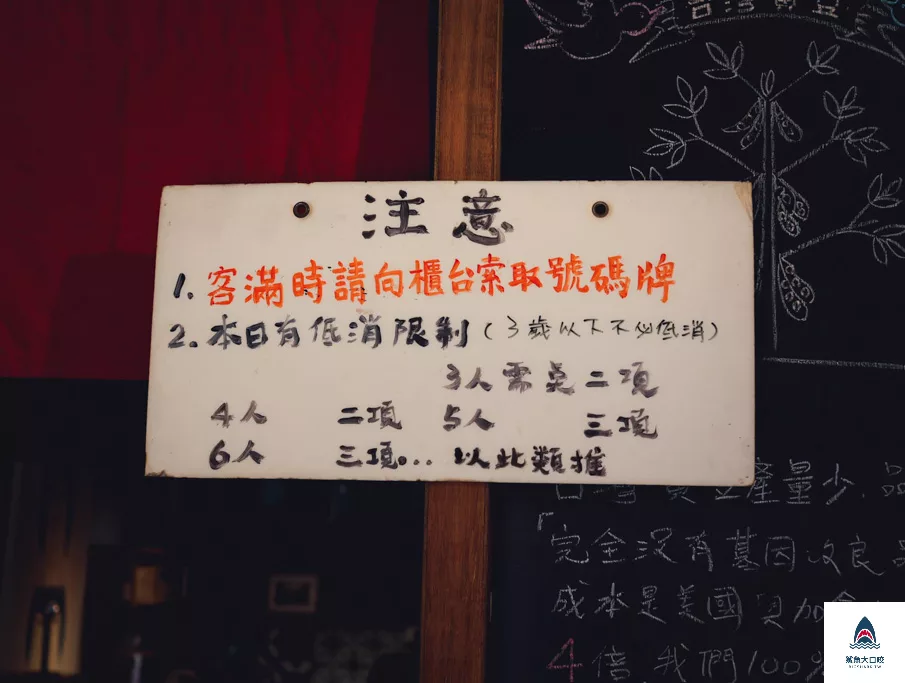 注意
1. 客滿時請向櫃台索取號碼牌
2. 本日有低消限制(3歲以下不必低消)
3人需桌二項
4人 二項 5人 三項
6人 三項。... 以此類推
產量少.品
「完全沒有基因改良
成本是美國
4倍,我們100%
鯊魚大口咬